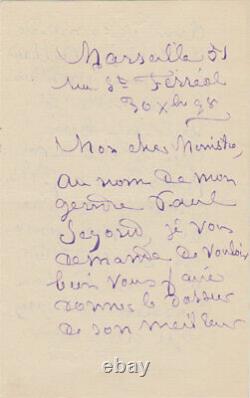 Marseille 51
rue St Ferréol
30 Xbre 98
Mon cher Ministre,
au nom de mon
gendre Paul
Segond, je vous
demande de vouloir
bien vous faire
donner le dossier
de son meilleur
© 122.fr